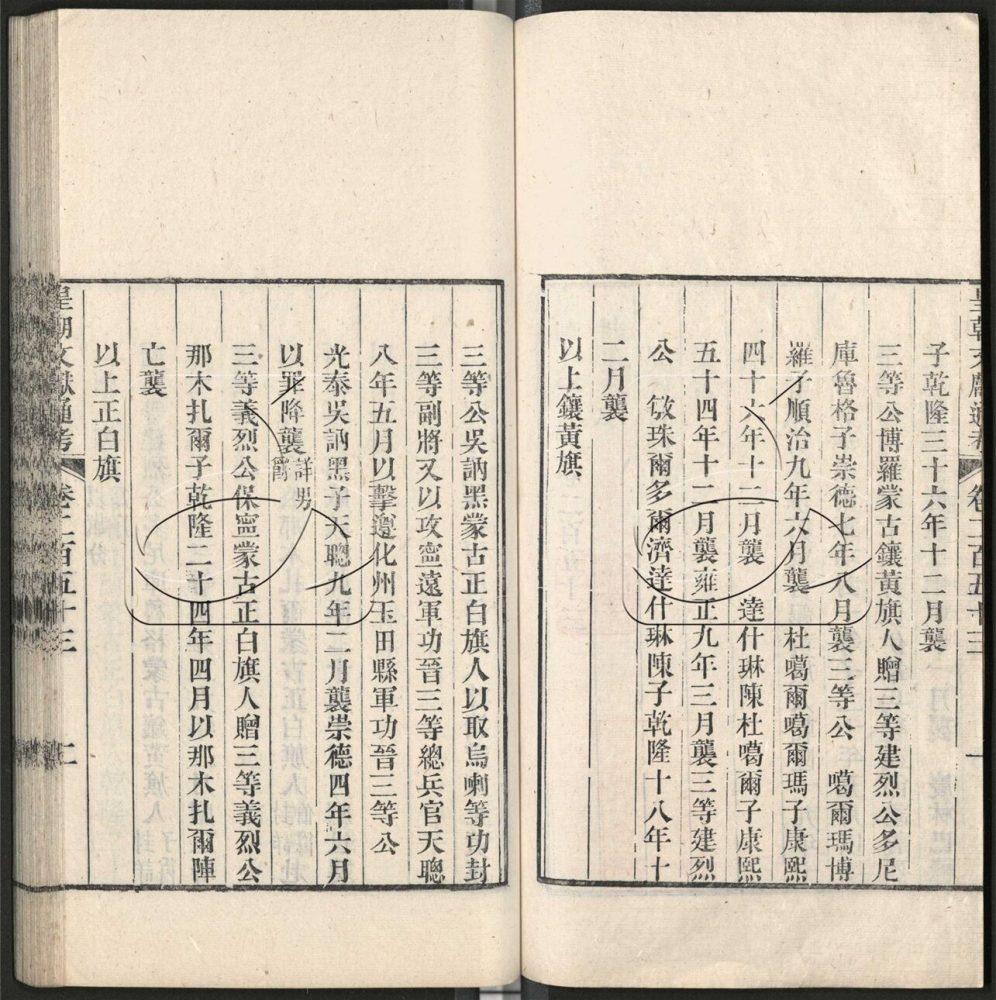 皇朝文獻通考 卷二百五十三 一
子乾隆三十六年十二月襲
三等公博羅蒙古鑲黃旗人贈三等建烈公多尼
庫魯格子崇德七年八月襲三等公 噶爾瑪博
羅子順治九年六月襲 杜噶爾噶爾瑪子康熙
四十六年十二月襲 達什琳陳杜噶爾子康熙
五十四年十二月襲雍正九年三月襲三等建烈
公 敏珠爾多爾濟達什琳陳子乾隆十八年十
二月襲
以上鑲黃旗
三等公吳訥黑蒙古正白旗人以取烏喇等功封
三等副將又以攻寧遠軍功晉三等總兵官天聰
八年五月以擊遵化州玉田縣軍功晉三等公
光泰吳訥黑子天聰九年二月襲崇德四年六月
以罪降襲詳男爵
三等義烈公保寧蒙古正白旗人贈三等義烈公
那木扎爾子乾隆二十四年四月以那木扎爾陣
亡襲
以上正白旗
皇朝文獻通考 卷二百五十三 二